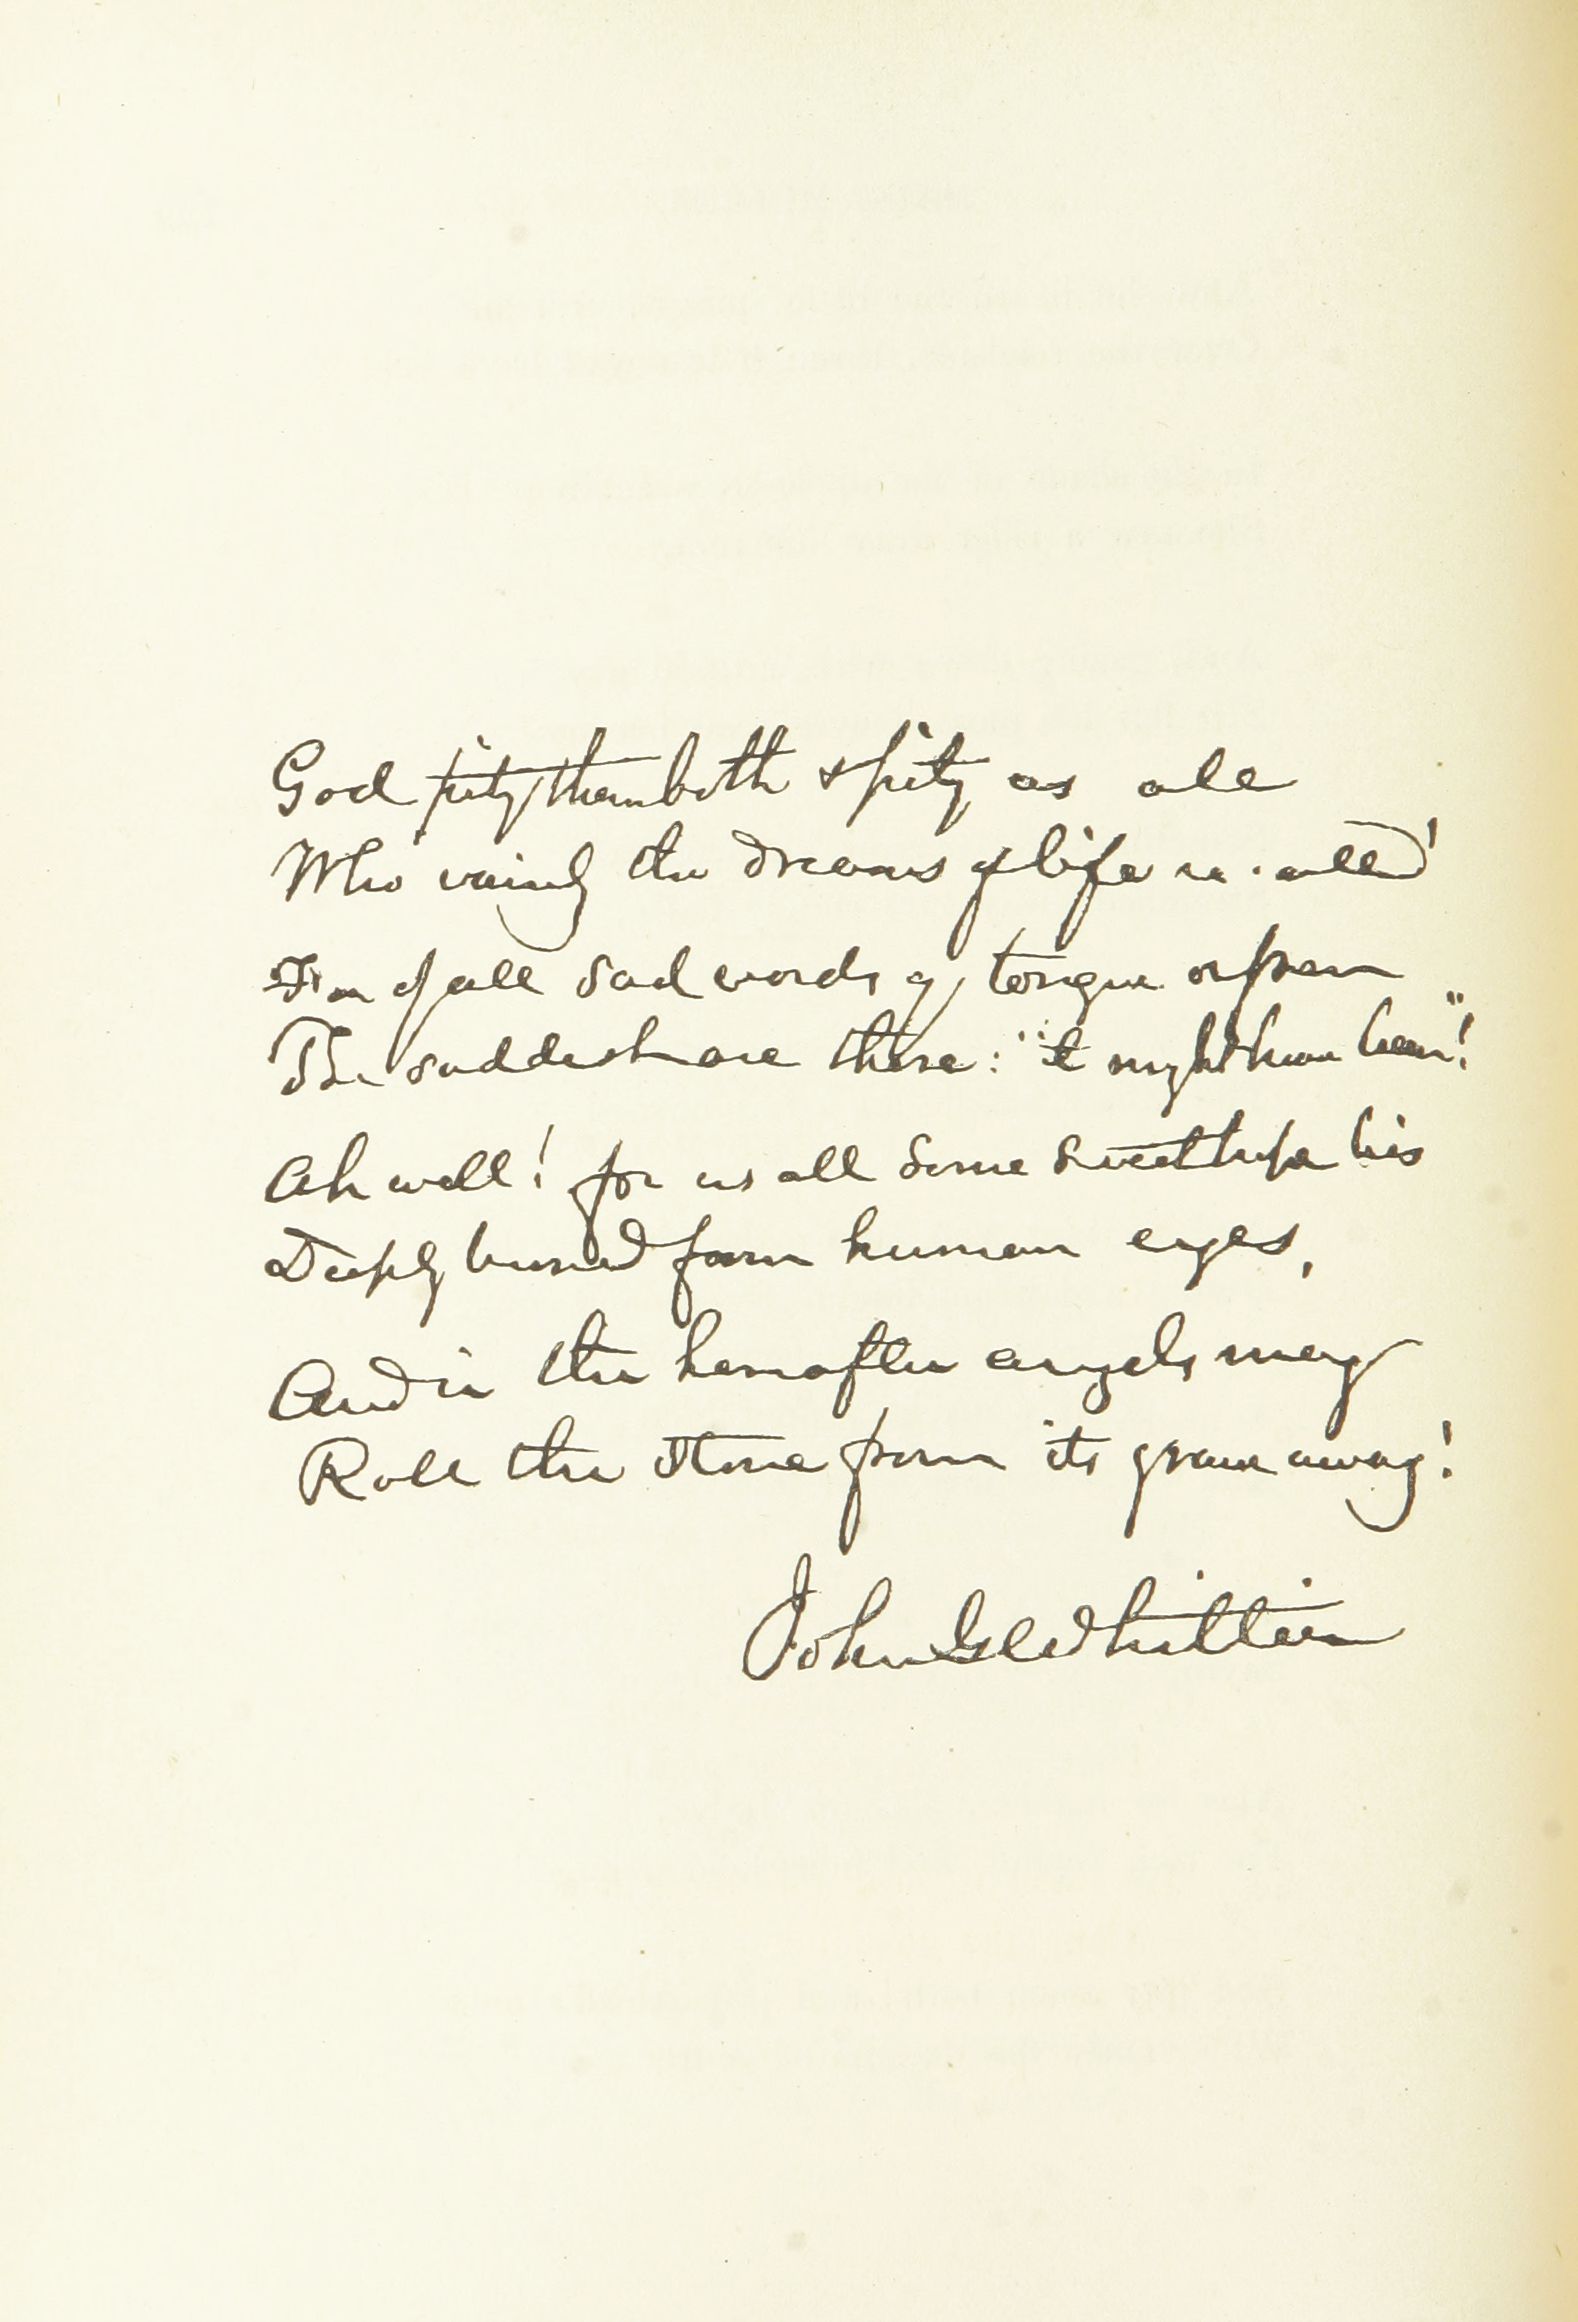 God pity them both & pity us all
Who vainly the dreams of life recall!
For of all sad words of tongue or pen
The saddest are these: "it might have been"!
Ah well! for us all some sweet hope lies
Deeply buried from human eyes,
And in the hereafter angels may
Roll the stone from its grave away!
John G Whittier